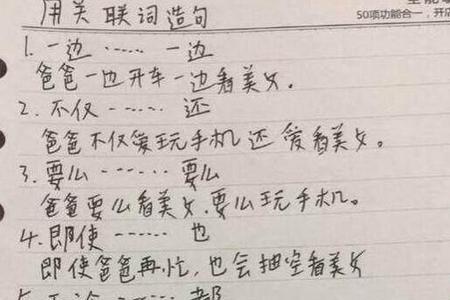 用关联词造句
50项功能合一，开店
1.一边……一边
爸爸一边开车一边看美女。
2.不仅……还
爸爸不仅爱玩手机还爱看美女。
3.要么……要么
爸爸要么看美女，要么玩手机。
4.即使……也
即使爸爸再忙，也会抽空看美女